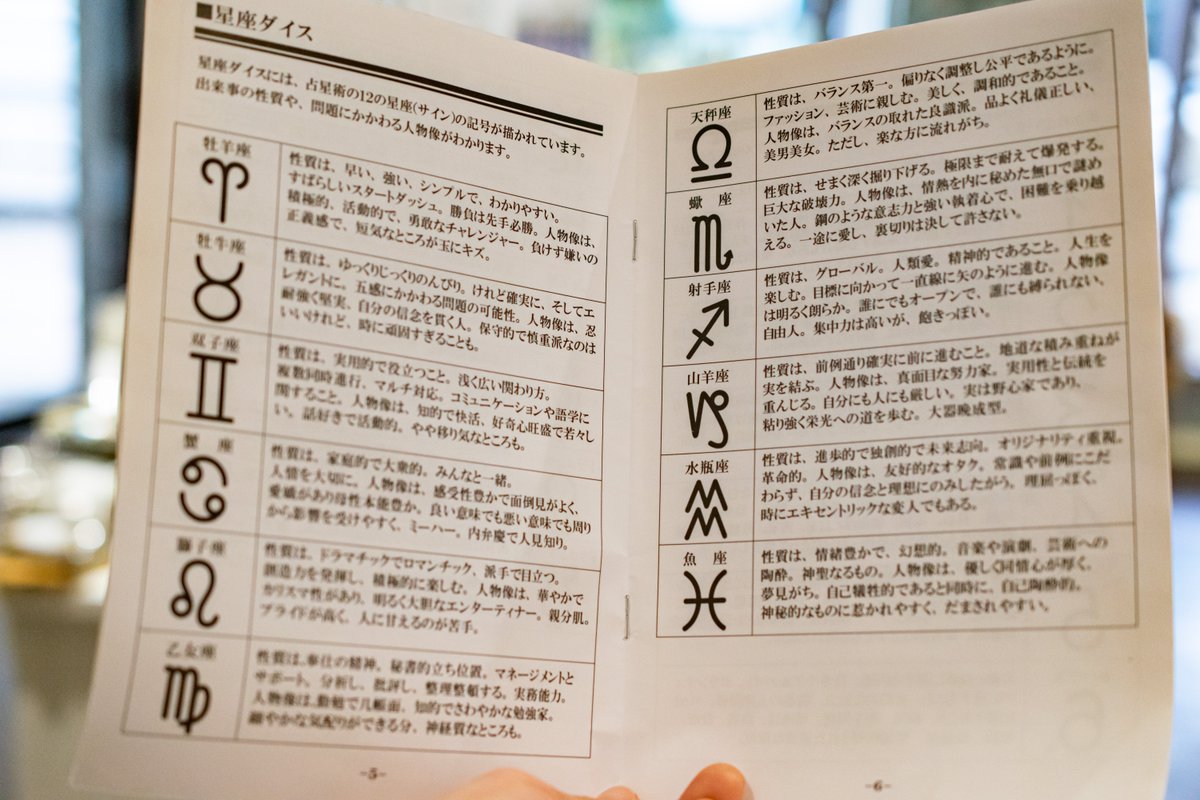 ■星座ダイス
星座ダイスには、占星術の12の星座(サイン)の記号が描かれています。
出来事の性質や、問題にかかわる人物像がわかります。
牡羊座
性質は、早い、強い、シンプルで、わかりやすい。
すばらしいスタートダッシュ。勝負は先手必勝。人物像は、
積極的、活動的で、勇敢なチャレンジャー。負けず嫌いの
正義感で、短気なところが玉にキズ。
牡牛座
性質は、ゆっくりじっくりのんびり。けれど確実に、そしてエ
レガントに。五感にかかわる問題の可能性。人物像は、忍
耐強く堅実、自分の信念を貫く人。保守的で慎重派なのは
いいけれど、時に頑固すぎることも。
双子座
性質は、実用的で役立つこと。浅く広い関わり方。
複数同時進行、マルチ対応。コミュニケーションや語学に
関すること。人物像は、知的で快活、好奇心旺盛で若々し
い。話好きで活動的。やや移り気なところも。
蟹座
性質は、家庭的で大衆的。みんなと一緒。
人情を大切に。人物像は、感受性豊かで面倒見がよく、
愛嬌があり母性本能豊か。良い意味でも悪い意味でも周り
から影響を受けやすく、ミーハー。内弁慶で人見知り。
獅子座
性質は、ドラマチックでロマンチック、派手で目立つ。
創造力を発揮し、積極的に楽しむ。人物像は、華やかで
カリスマ性があり、明るく大胆なエンターティナー。親分肌。
プライドが高く、人に甘えるのが苦手。
乙女座
性質は、奉仕の精神。秘書的立ち位置。マネージメントと
サポート、分析し、批評し、整理整頓する。実務能力。
人物像は、勤勉で几帳面、知的でさわやかな勉強家。
細やかな気配りができる分、神経質なところも。
-5-
天秤座
性質は、バランス第一。偏りなく調整し公平であるように。
ファッション、芸術に親しむ。美しく、調和的であること。
人物像は、バランスの取れた良識派。品よく礼儀正しい、
美男美女。ただし、楽な方に流れがち。
蠍座
性質は、せまく深く掘り下げる。極限まで耐えて爆発する。
巨大な破壊力。人物像は、情熱を内に秘めた無口で謎め
いた人。鋼のような意志力と強い執着心で、困難を乗り越
える。一途に愛し、裏切りは決して許さない。
射手座
性質は、グローバル。人類愛。精神的であること。人生を
楽しむ。目標に向かって一直線に矢のように進む。人物像
は明るく朗らか。誰にでもオープンで、誰にも縛られない、
自由人。集中力は高いが、飽きっぽい。
山羊座
性質は、前例通り確実に前に進むこと。地道な積み重ねが
実を結ぶ。人物像は、真面目な努力家。実用性と伝統を
重んじる。自分にも人にも厳しい。実は野心家であり、
粘り強く栄光への道を歩む。大器晩成型。
水瓶座
性質は、進歩的で独創的で未来志向。オリジナリティ重視。
革命的。人物像は、友好的なオタク。常識や前例にこだ
わらず、自分の信念と理想にのみしたがう。理屈っぽく、
時にエキセントリックな変人でもある。
魚座
性質は、情緒豊かで、幻想的。音楽や演劇、芸術への
陶酔。神聖なるもの。人物像は、優しく同情心が厚く、
夢見がち。自己犠牲的であると同時に、自己陶酔的。
神秘的なものに惹かれやすく、だまされやすい。
-6-